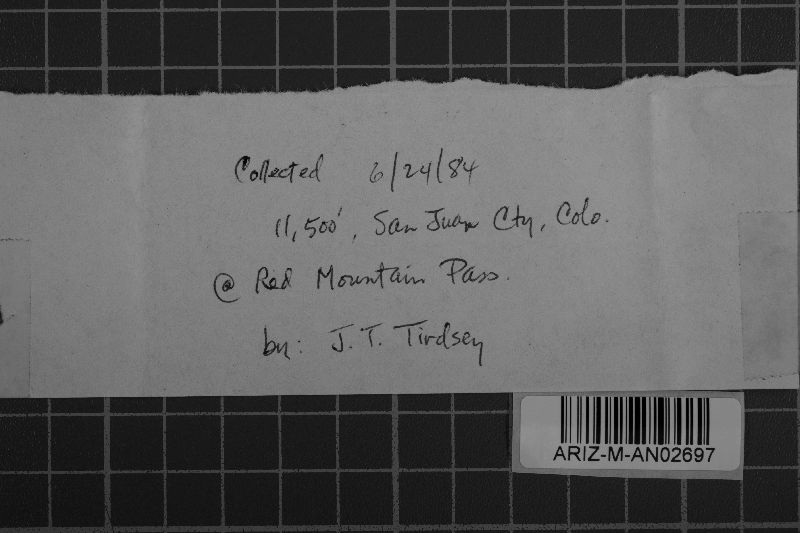 Collected 6/24/84
11,500', San Juan Cty, Colo.
@ Red Mountain Pass.
by: J. T. Tirdsey
ARIZ-M-AN02697